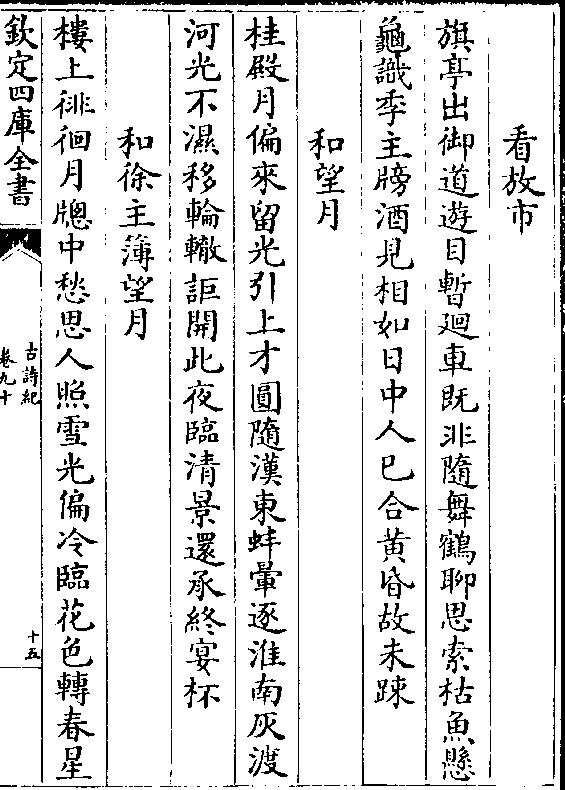 看放市
旗亭出御道遊目暫廻車既非隨舞鶴聊思索枯魚懸
龜識季主牓酒見相如日中人已合黃昏故未踈
和望月
桂殿月偏來留光引上才圓隨漢東蚌暈逐淮南灰渡
河光不濕移輪轍詎開此夜臨清景還承終宴杯
和徐主簿望月
樓上徘徊月牕中愁思人照雪光偏冷臨花色轉春星
欽定四庫全書
古詩紀
卷九十
十五